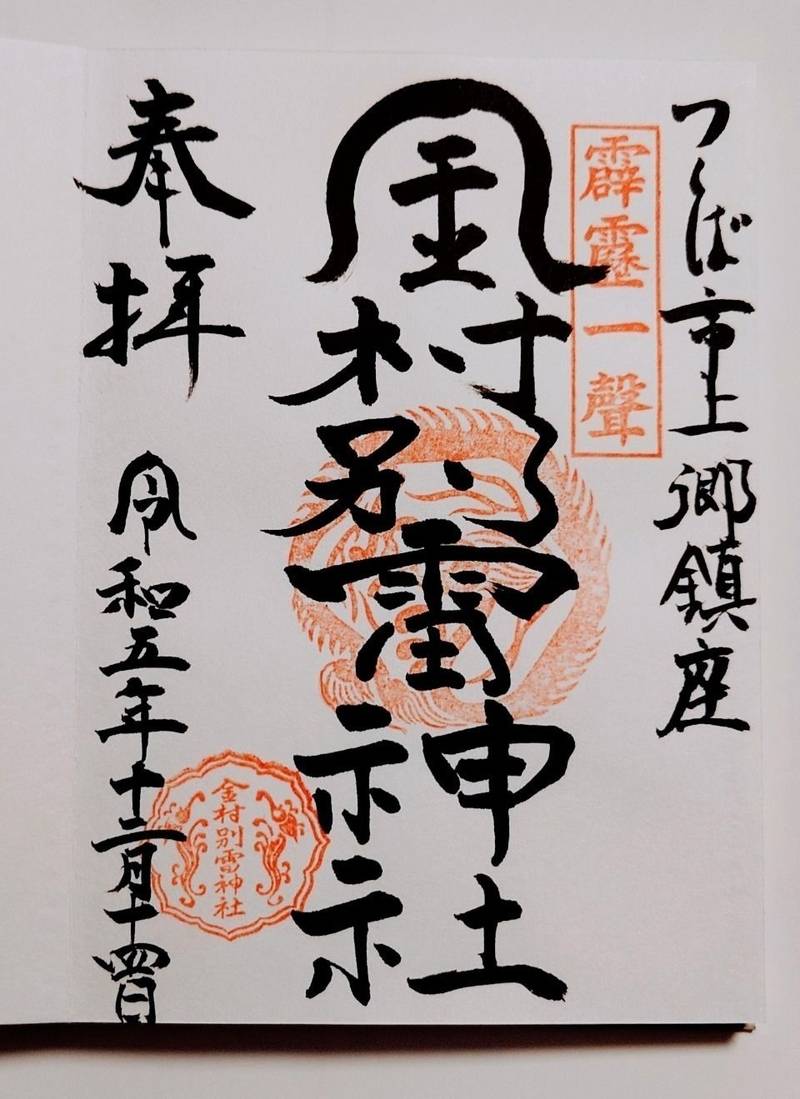 つくば市上郷鎮座
霹靂一聲
金村別雷神社
奉拝
令和五年十二月十四日
金村別雷神社